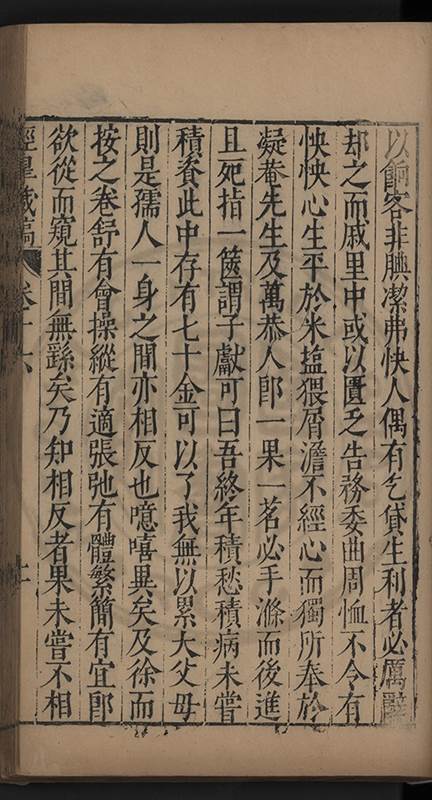 以餉客非腆潔弗快人偶有乞貸生利者必厲辭
却之而戚里中或以匱乏告務委曲周恤不令有
怏怏心生平於米塩猥屑澹不經心而獨所奉於
凝菴先生及萬恭人卽一果一茗必手滌而後進
且死指一篋謂子獻可曰吾終年積愁積病未嘗
積養此中存有七十金可以了我無以累大父母
則是孺人一身之間亦相反也噫嘻異矣及徐而
按之卷舒有會操縱有適張弛有體繁簡有宜卽
欲從而窺其間無繇矣乃知相反者果未嘗不相
經臯藏稿 卷十六 十一